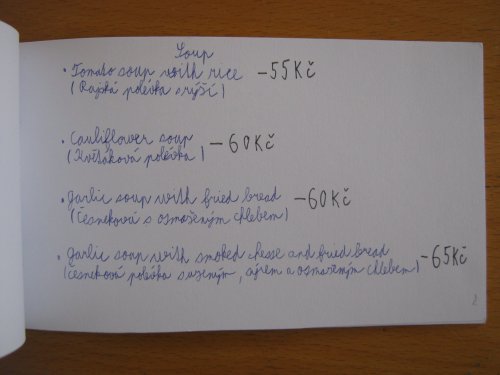 Soup
• Tomato soup with rice - 55 Kč
(Rajská polévka s rýží)
• Cauliflower soup - 60 Kč
(Květáková polévka)
• Garlic soup with fried bread - 60 Kč
(Česneková s osmaženým chlebem)
• Garlic soup with smoked chesse and fried bread - 65 Kč
(Česneková polévka s uzeným, sýrem a osmaženým chlebem)